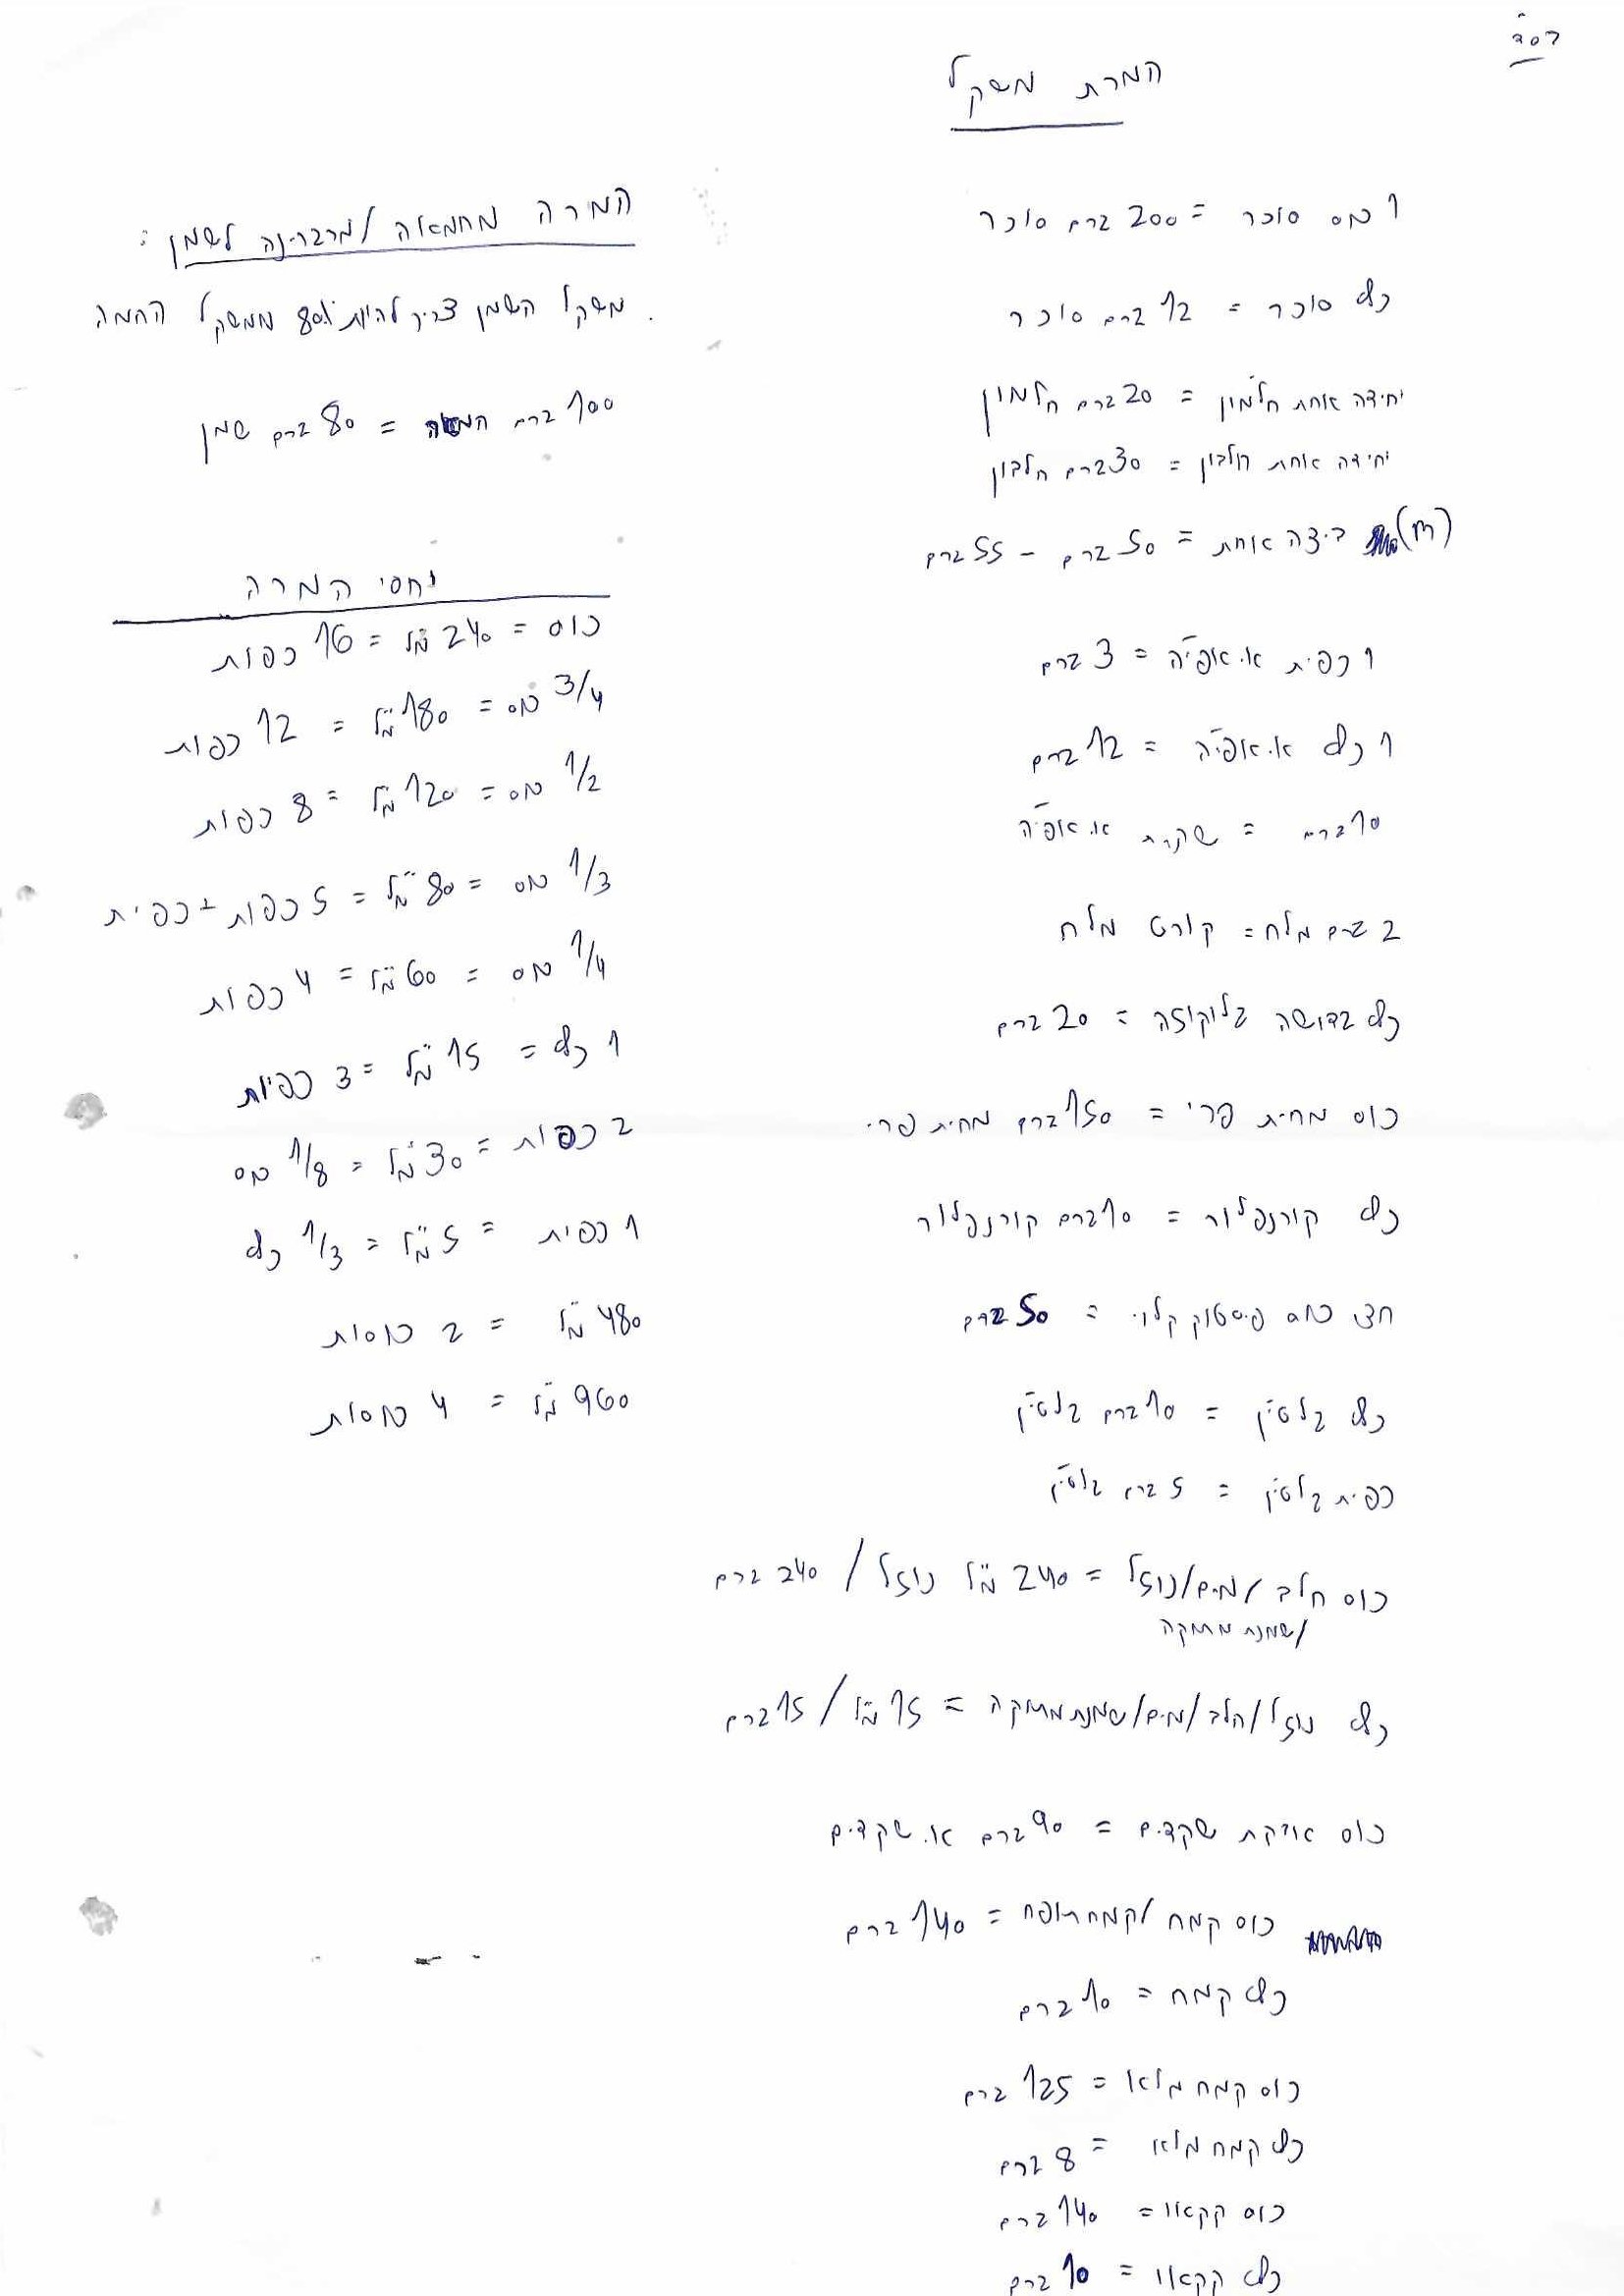 בס"ד
המרת משקל
1 כוס סוכר = 200 גרם סוכר
כף סוכר = 12 גרם סוכר
יחידה אחת חלמון = 20 גרם חלמון
יחידה אחת חלבון = 30 גרם חלבון
(m) ביצה אחת = 50 גרם - 55 גרם
1 כפית א. אפיה = 3 גרם
1 כף א. אפיה = 12 גרם
10 גרם = שקית א. אפיה
2 גרם מלח = קורט מלח
כף גדושה גלוקוזה = 20 גרם
כוס מחית פרי = 150 גרם מחית פרי
כף קורנפלור = 10 גרם קורנפלור
חצי כוס פיסטוק קלוי = 50 גרם
כף גלטין = 10 גרם גלטין
כפית גלטין = 5 גרם גלטין
כוס חלב/מים/נוזל = 240 מ"ל נוזל / 240 גרם
/שמנת מתוקה
כף נוזל/חלב/מים/שמנת מתוקה = 15 מ"ל / 15 גרם
כוס אבקת שקדים = 90 גרם א. שקדים
כוס קמח/קמח תופח = 140 גרם
כף קמח = 10 גרם
כוס קמח מלא = 125 גרם
כף קמח מלא = 8 גרם
כוס קקאו = 140 גרם
כף קקאו = 10 גרם
המרה מחמאה/מרגרינה לשמן:
. משקל השמן צריך להיות 80% ממשקל החמה
100 גרם = 80 גרם שמן
יחסי המרה
כוס = 240 מ"ל = 16 כפות
3/4 כוס = 180 מ"ל = 12 כפות
1/2 כוס = 120 מ"ל = 8 כפות
1/3 כוס = 80 מ"ל = 5 כפות + כפית
1/4 כוס = 60 מ"ל = 4 כפות
1 כף = 15 מ"ל = 3 כפיות
2 כפות = 30 מ"ל = 1/8 כוס
1 כפית = 5 מ"ל = 1/3 כף
480 מ"ל = 2 כוסות
960 מ"ל = 4 כוסות